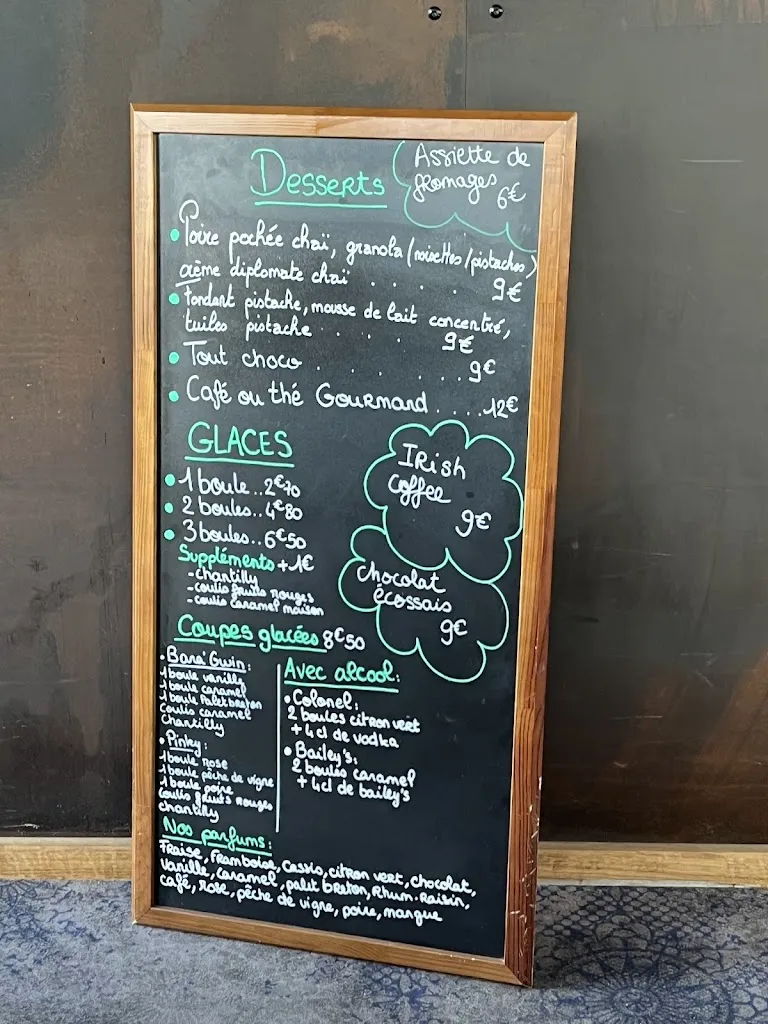 Desserts
Assiette de
fromages
6€
• Poire pochée chaï, granola (noisettes/pistaches)
crème diplomate chaï . . . . . 9€
• Fondant pistache, mousse de lait concentré,
tuiles pistache . . . . 9€
• Tout choco . . . . . . 9€
• Café ou thé Gourmand . . . . 12€
GLACES
• 1 boule.. 2€70
• 2 boules.. 4€80
• 3 boules.. 6€50
Suppléments +1€
- chantilly
- coulis fruits rouges
- coulis caramel maison
IRish
coffee
9€
chocolat
écossais
9€
Coupes glacées 8€50
• Bara'Gwin:
1 boule vanille
1 boule caramel
1 boule Palet breton
coulis caramel
chantilly
• Pinky:
1 boule Rose
1 boule pêche de vigne
1 boule poire
coulis fruits rouges
chantilly
Avec alcool:
• Colonel:
2 boules citron vert
+ 4 cl de vodka
• Bailey's:
2 boules caramel
+ 4cl de bailey's
Nos parfums:
Fraise, Framboise, Cassis, citron vert, chocolat,
Vanille, caramel, palet breton, Rhum-Raisin,
café, rose, pêche de vigne, poire, mangue